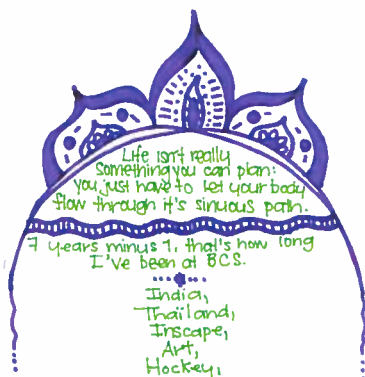 Life isn't really
something you can plan:
you just have to let your body
flow through it's sinuous path.
7 years minus 1, that's how long
I've been at BCS.
India,
Thailand,
Inscape,
Art,
Hockey,